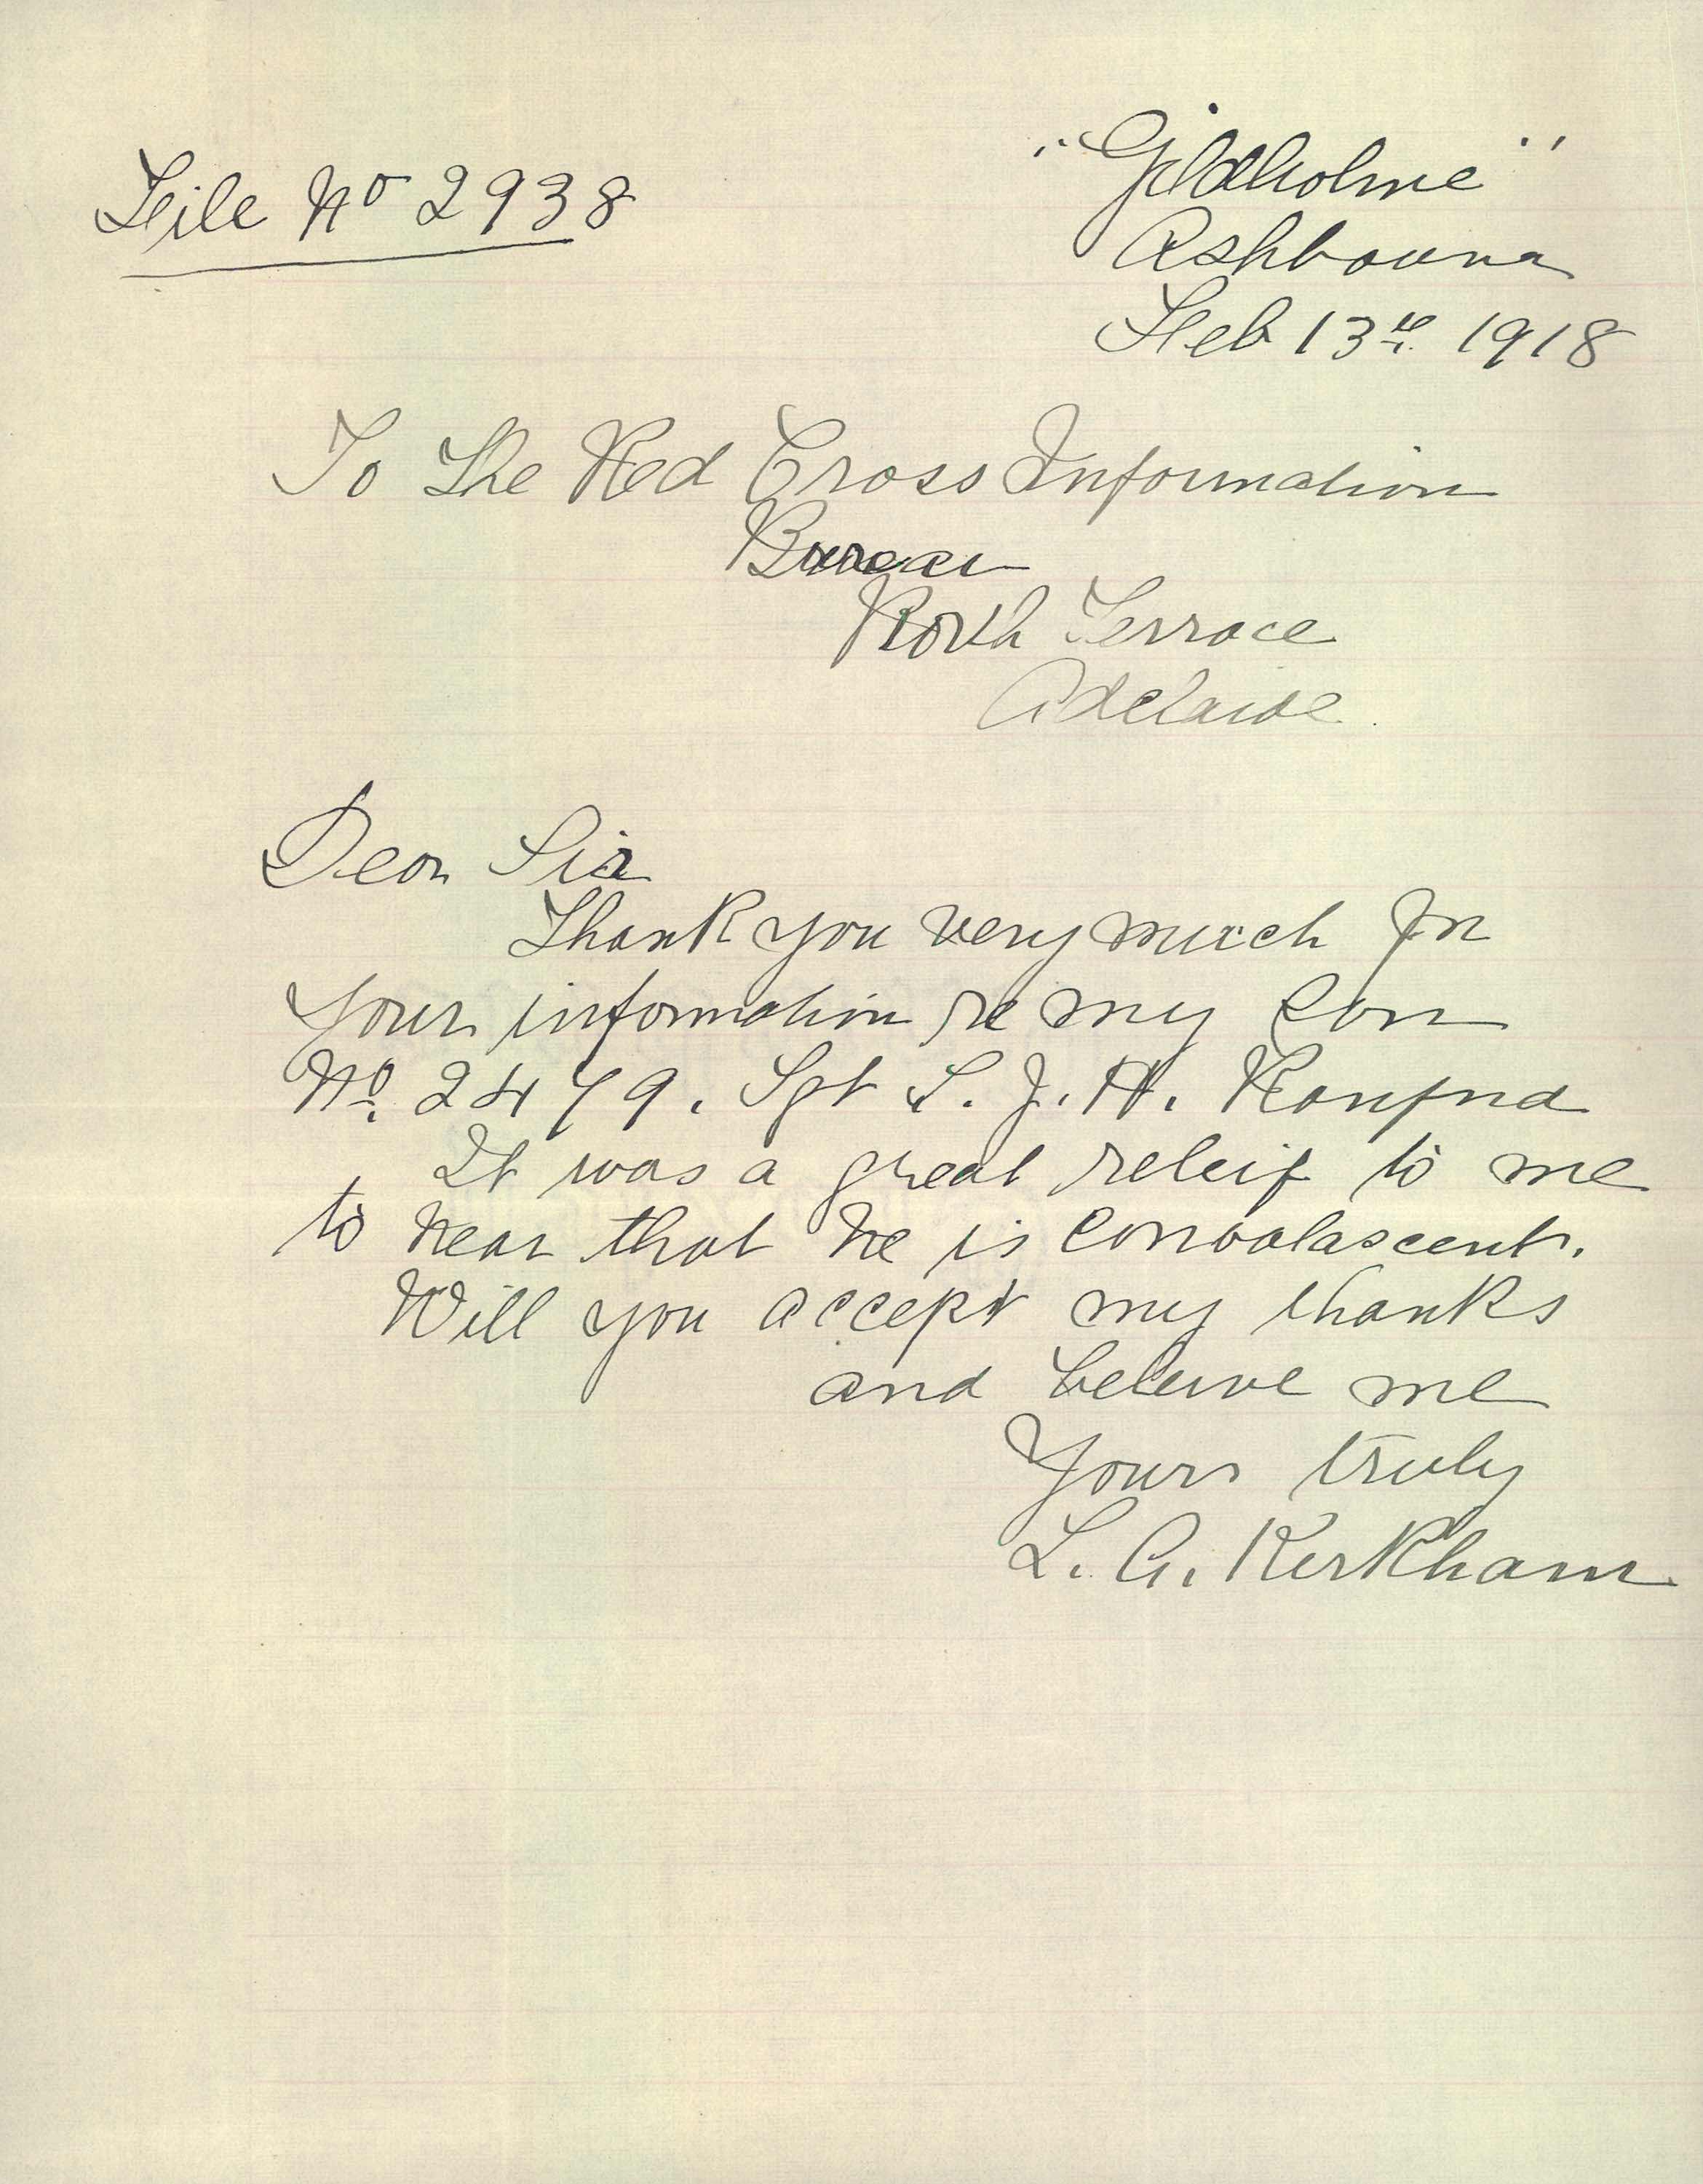 File No 2938
"Gildholme"
Ashbourne
Feb 13th 1918
To The Red Cross Information
Bureau
North Terrace
Adelaide.
Dear Sir
Thank you very much for
your information re my son
No. 2479. Sgt L. J. H.
It was a great releif to me
to hear that he is convalascent.
Will you accept my thanks
and beleive me
Yours truly
L. A. Kerkham